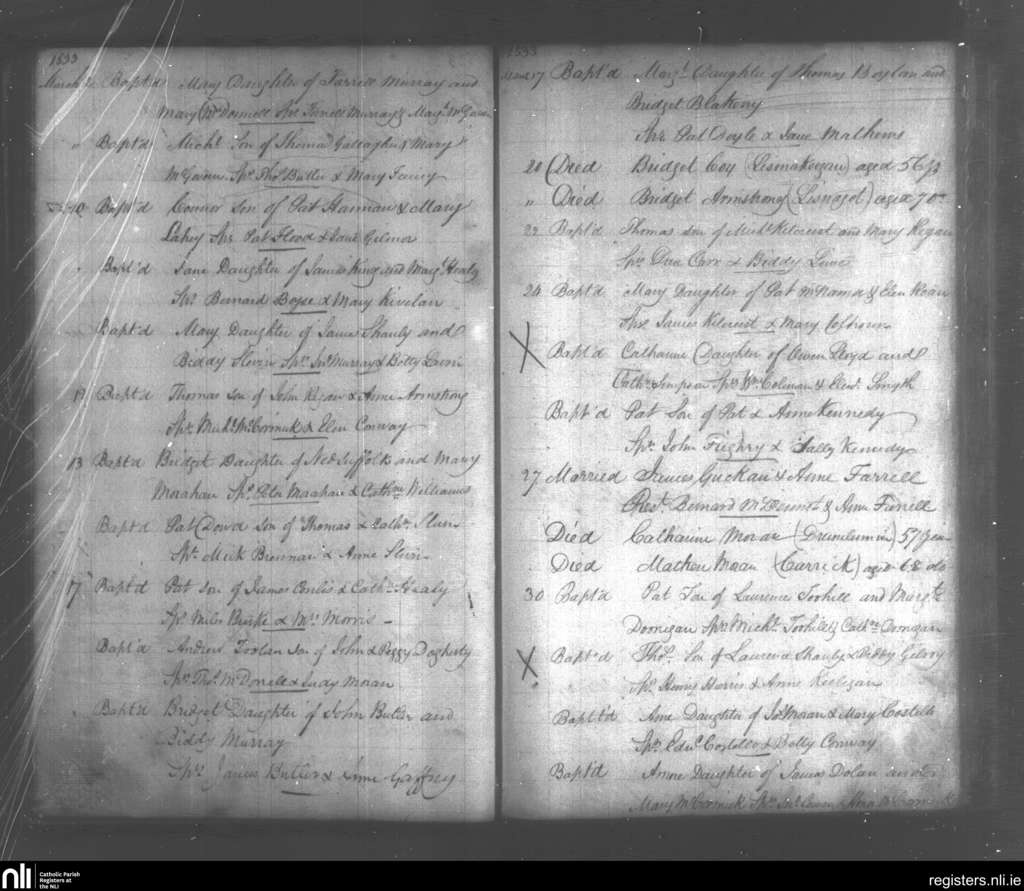 1833
March Bapt'd Mary Daughter of Farrell Murray and
Mary McDonnell Sps Farrell Murray & Margt McGann
" Bapt'd Michl Son of Thomas Gallagher & Mary
McGann Sps Thos Butler & Mary Feeney
10 Bapt'd Connor Son of Pat Hannan & Mary
Lahey Sps Pat Flood & Jane Gilmor
" Bapt'd Jane Daughter of James King and Margt Healy
Sps Bernard Boyse & Mary Kivelan
Bapt'd Mary Daughter of James Shanly and
Biddy Slevin Sps Jno Murray & Betty Lavin
Bapt'd Thomas Son of John Regan & Anne Armstrong
Sps Michl McCormick & Elen Conway
13 Bapt'd Bridget Daughter of Ned Suffolk and Mary
Monahan Sps Peter Monahan & Cathne Williams
Bapt'd Pat Dowd Son of Thomas & Cathn
Sps Mick Brennan & Anne
17 Bapt'd Pat Son of James Conlis & Cathn Healy
Sps Miles Burke & Mrs Morris
Bapt'd Andrew Toolan Son of John & Peggy Dogherty
Sps Thos McDonell & Judy Moran
Bapt'd Bridget Daughter of John Butler and
Biddy Murray
Sps James Butler & Anne Gaffney
1833
March 17 Bapt'd Margt Daughter of Thomas Boylan and
Bridget Blakeny
Sps Pat Doyle & Jane Mathews
20 Died Bridget Coy (Lismakegan) aged 56 ys
" Died Bridget Armstrong (Lisnagot) aged 70
22 Bapt'd Thomas Son of Michl Kilcreist and Mary Regan
Sps Carr & Biddy
24 Bapt'd Mary Daughter of Pat McNama & Elen Kean
Sps James Kilcreist & Mary
X Bapt'd Catharine Daughter of Owen Lloyd and
Cathn Simpson Sps Wm Colman & Smyth
Bapt'd Pat Son of Pat & Anne Kennedy
Sps John & Sally Kennedy
27 Married James Guckan & Anne Farrell
Prest Bernard McDermott & Anne Farrell
Died Catharine Moran 57 years
Died Mathew Moran (Carrick) aged 68 do
30 Bapt'd Pat Son of Laurence Torhill and Margte
Dornigan Sps Michl Torhill & Cathne Dornigan
X Bapt'd Thos Son of Laurence Shanly & Biddy Gilroy
Sps Henry Harris & Anne
Bapt'd Anne Daughter of Jas Moran & Mary Costello
Sps Edwd Costello & Betty Conway
Bapt'd Anne Daughter of James Dolan and
Mary McCormick Sps
nli
Catholic Parish
Registers at
the NLI
registers.nli.ie